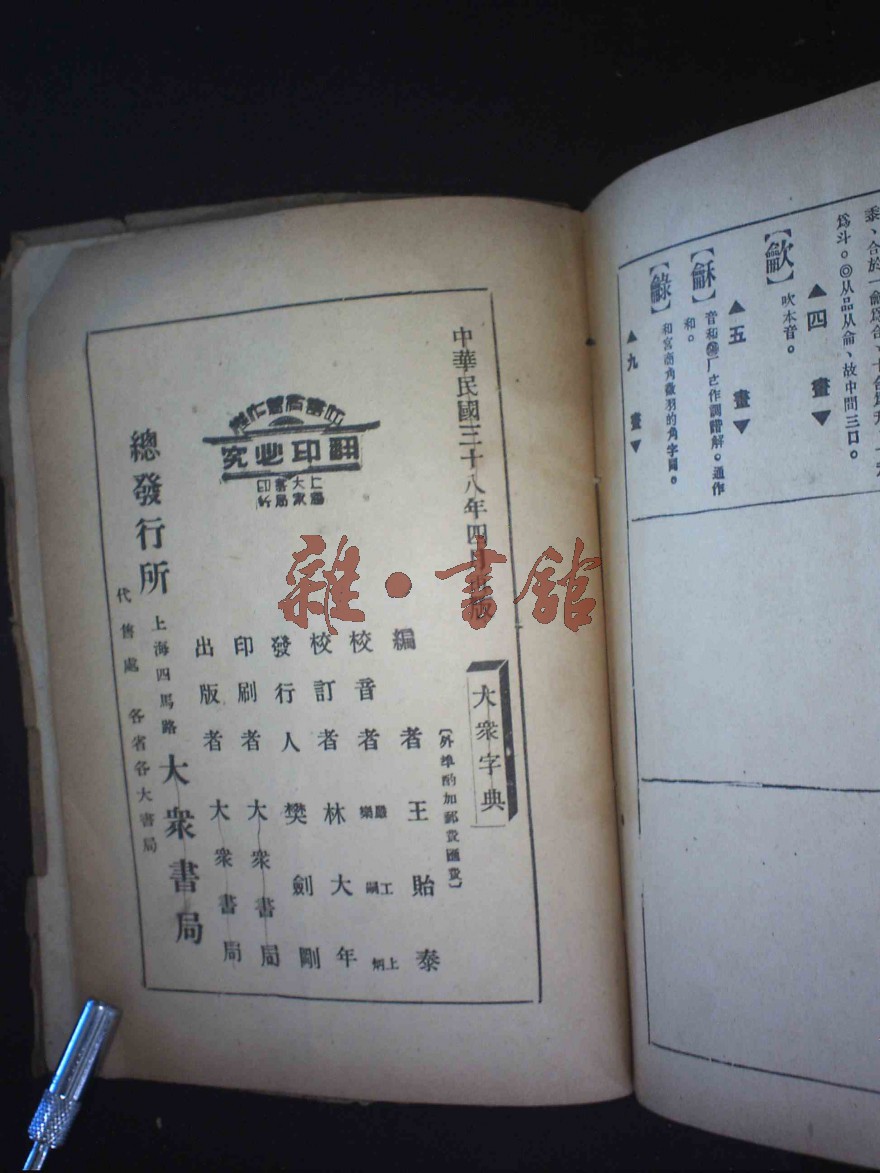 黍、合於一龠爲合、十合爲升、十升
爲斗。◎从品从侖、故中間三口。
▲四 畫▼
【龡】
吹本音。
▲五 畫▼
【龢】
音和
古作調諧解。通作
和。
【龣】
和宮商角徵羽的角字同。
▲九 畫▼
中華民國三十八年四月出版
大衆字典
【外埠酌加郵費匯費】
編者 王貽泰
校音者
校訂者 林大年
發行人 樊劍剛
印刷者 大衆書局
出版者 大衆書局
總發行所 上海四馬路 大衆書局
代售處 各省各大書局
翻印必究
上海
大衆
書局
印行
雜·書館